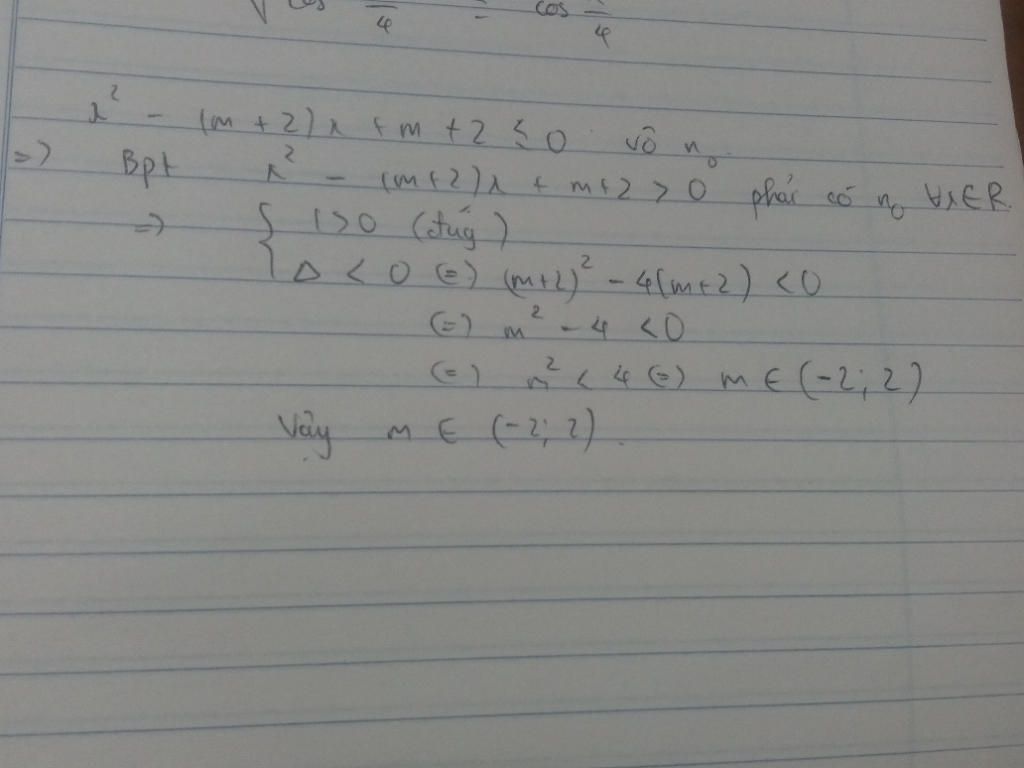 √ cos /4 = cos /4
x² - (m+2)x + m + 2 ≤ 0 vô n₀.
=> Bpt x² - (m+2)x + m+2 > 0 phải có n₀ ∀x∈R.
=> { 1>0 (đúg)
Δ < 0 (=) (m+2)² - 4(m+2) < 0
(=) m² - 4 < 0
(=) m² < 4 (=) m ∈ (-2; 2)
Vậy m ∈ (-2; 2).